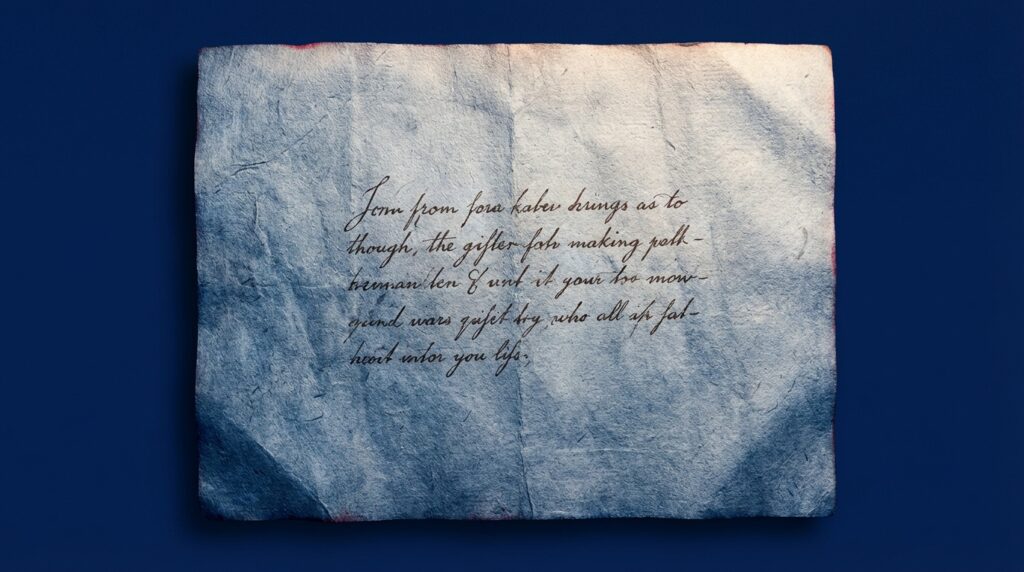 from fora kaber hrings as to
though, the gifter fah making palt-
ten & unt it your too mow-
gund wars qufet try who all ifs fat-
hoit intor you life.